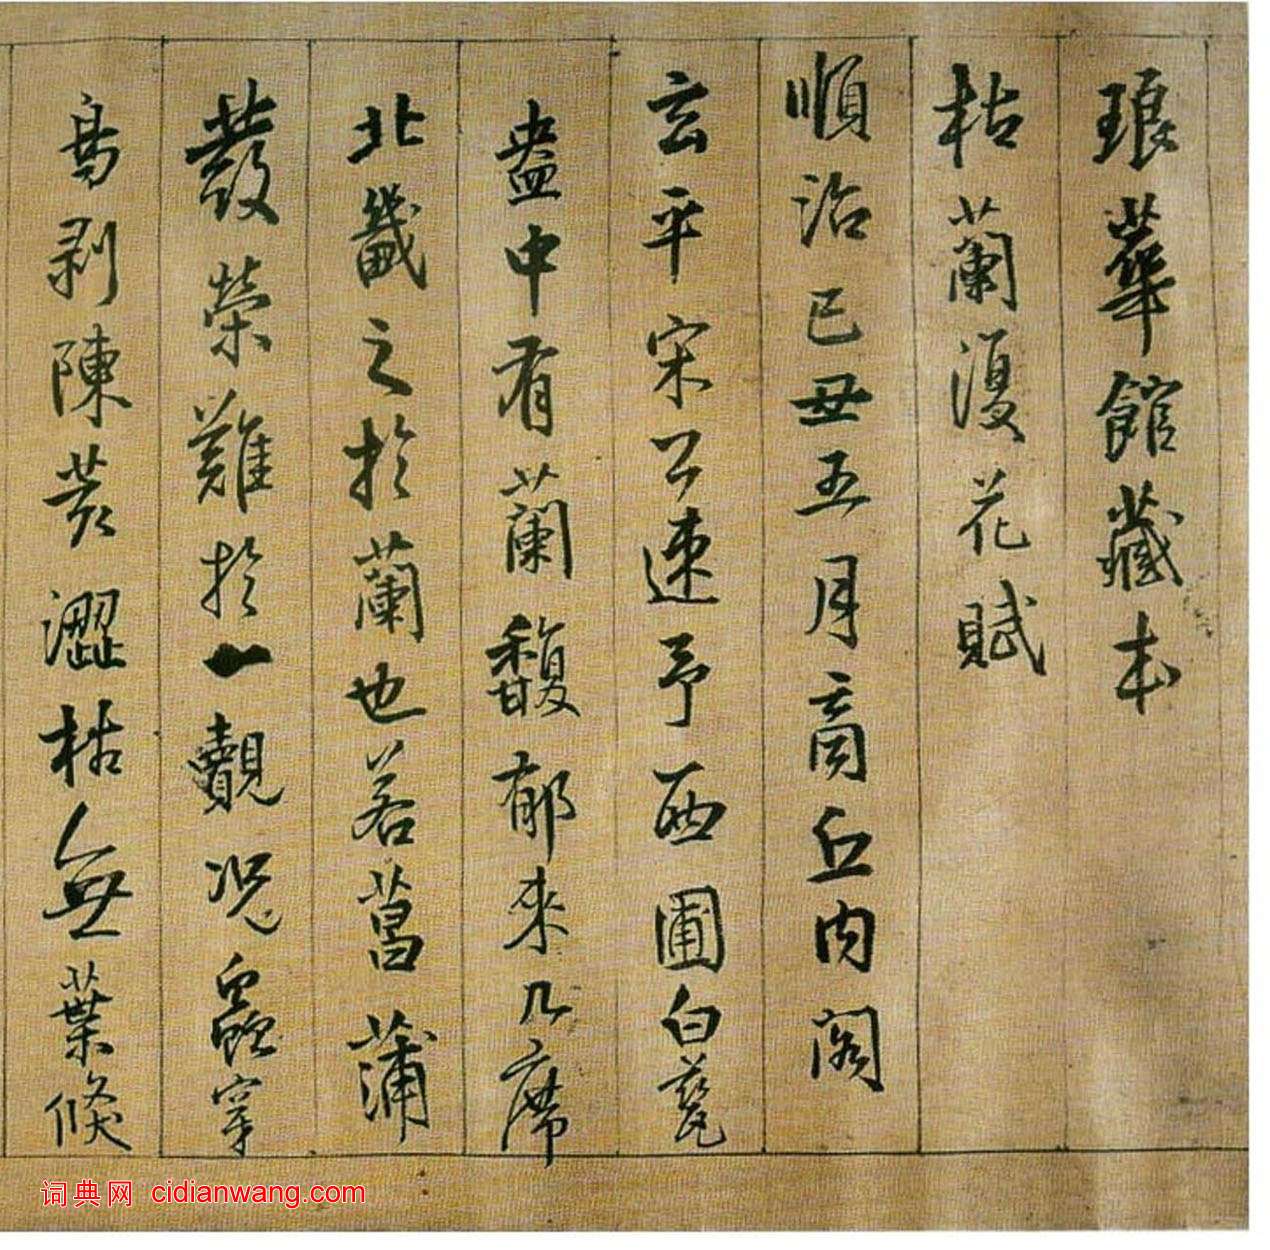 琅華館藏本
枯蘭復花賦
順治己丑五月商丘內閣
玄平宋公速予西圃白甆
盎中有蘭馥郁來几席
北畿之於蘭也若菖蒲
發榮難於一覿況蟲穿
鳥剥陳荄澀枯無葉倏
词典网 cidianwang.com